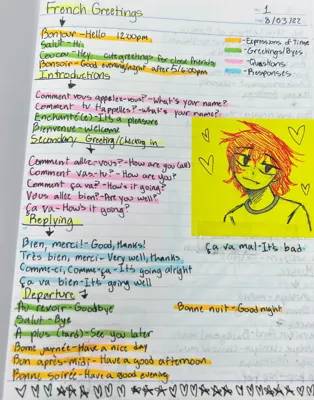 French Greetings
1
8/03/22
Bonjour-Hello 12:00pm
Salut-Hi
Coucou-Hey, cute greetings for close friends
Bonsoir-Good evening/night after 5/6:00pm
-Expressions of Time
-Greetings/Byes
-Questions
-Responses
Introductions
Comment vous appelez-vous?-What's your name?
Comment tu t'appelles?-what's your name?
Enchanté(e)-It's a pleasure
Bienvenue-Welcome
Secondary Greeting/Checking in
Comment allez-vous?-How are you (all)
Comment vas-tu?-How are you?
Comment ça va?-How's it going?
Vous allez bien?-Are you well?
Ça va-How's it going?
Replying
Bien, merci!-Good, thanks!
Très bien, merci-Very well, thanks
Comme-ci, Comme-ça-It's going alright
Ça va bien-It's going well
ça va mal-It's bad
Departure
Au revoir-Goodbye
Salut-Bye
A plus (tard)-See you later
Bonne journée-Have a nice day
Bon après-midi-Have a good afternoon
Bonne soirée-Have a good evening
Bonne nuit-Good night